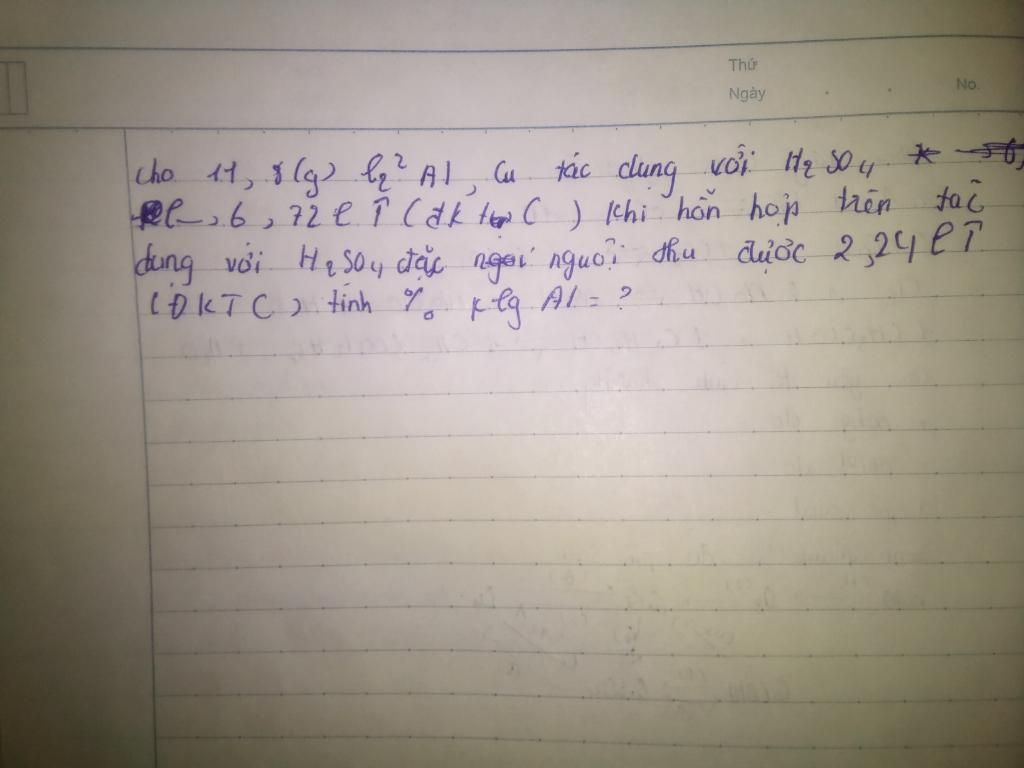 Thứ
Ngày
No.
cho 11, 8(g) l₂² Al, Cu tác dụng với H₂SO₄
6, 72 l ↑ (đk C ) khi hỗn hợp trên tác
dụng với H₂SO₄ đặc nguội thu được 2,24 l ↑
(ĐKTC) tính % klg Al = ?